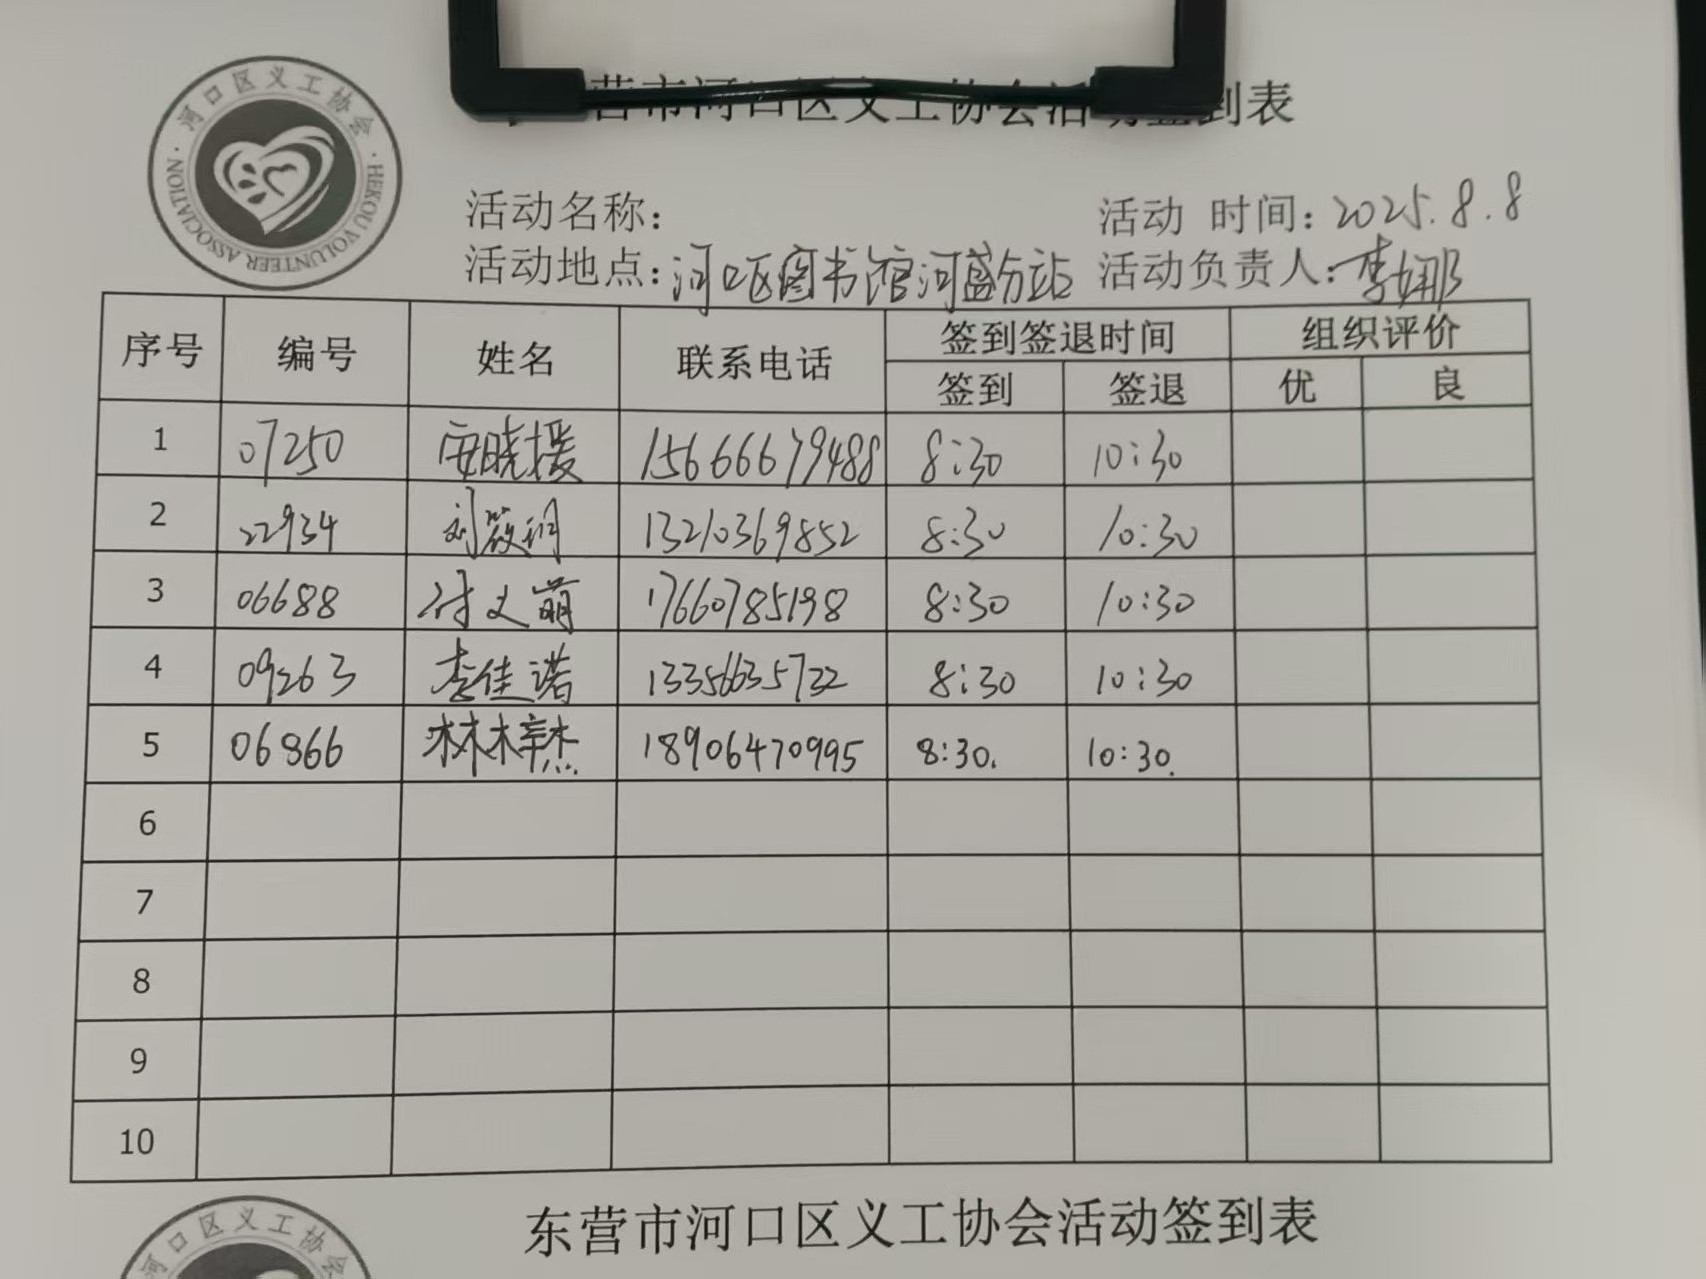 河口区义工协会
HEKOU VOLUNTEER ASSOCIATION
营市河口区义工协会活动签到表
活动名称:
活动 时间: 2025.8.8
活动地点: 河口区图书馆河盛分站 活动负责人: 李娜
序号 编号 姓名 联系电话 签到签退时间 组织评价
签到 签退 优 良
1 07250 安晓援 15666679488 8:30 10:30
2 22934 刘筱 13210369852 8:30 10:30
3 06688 付义萌 17660785198 8:30 10:30
4 09263 李佳诺 13356635722 8:30 10:30
5 06866 林梓杰 18906470995 8:30. 10:30.
6
7
8
9
10
东营市河口区义工协会活动签到表
河口区义工协会